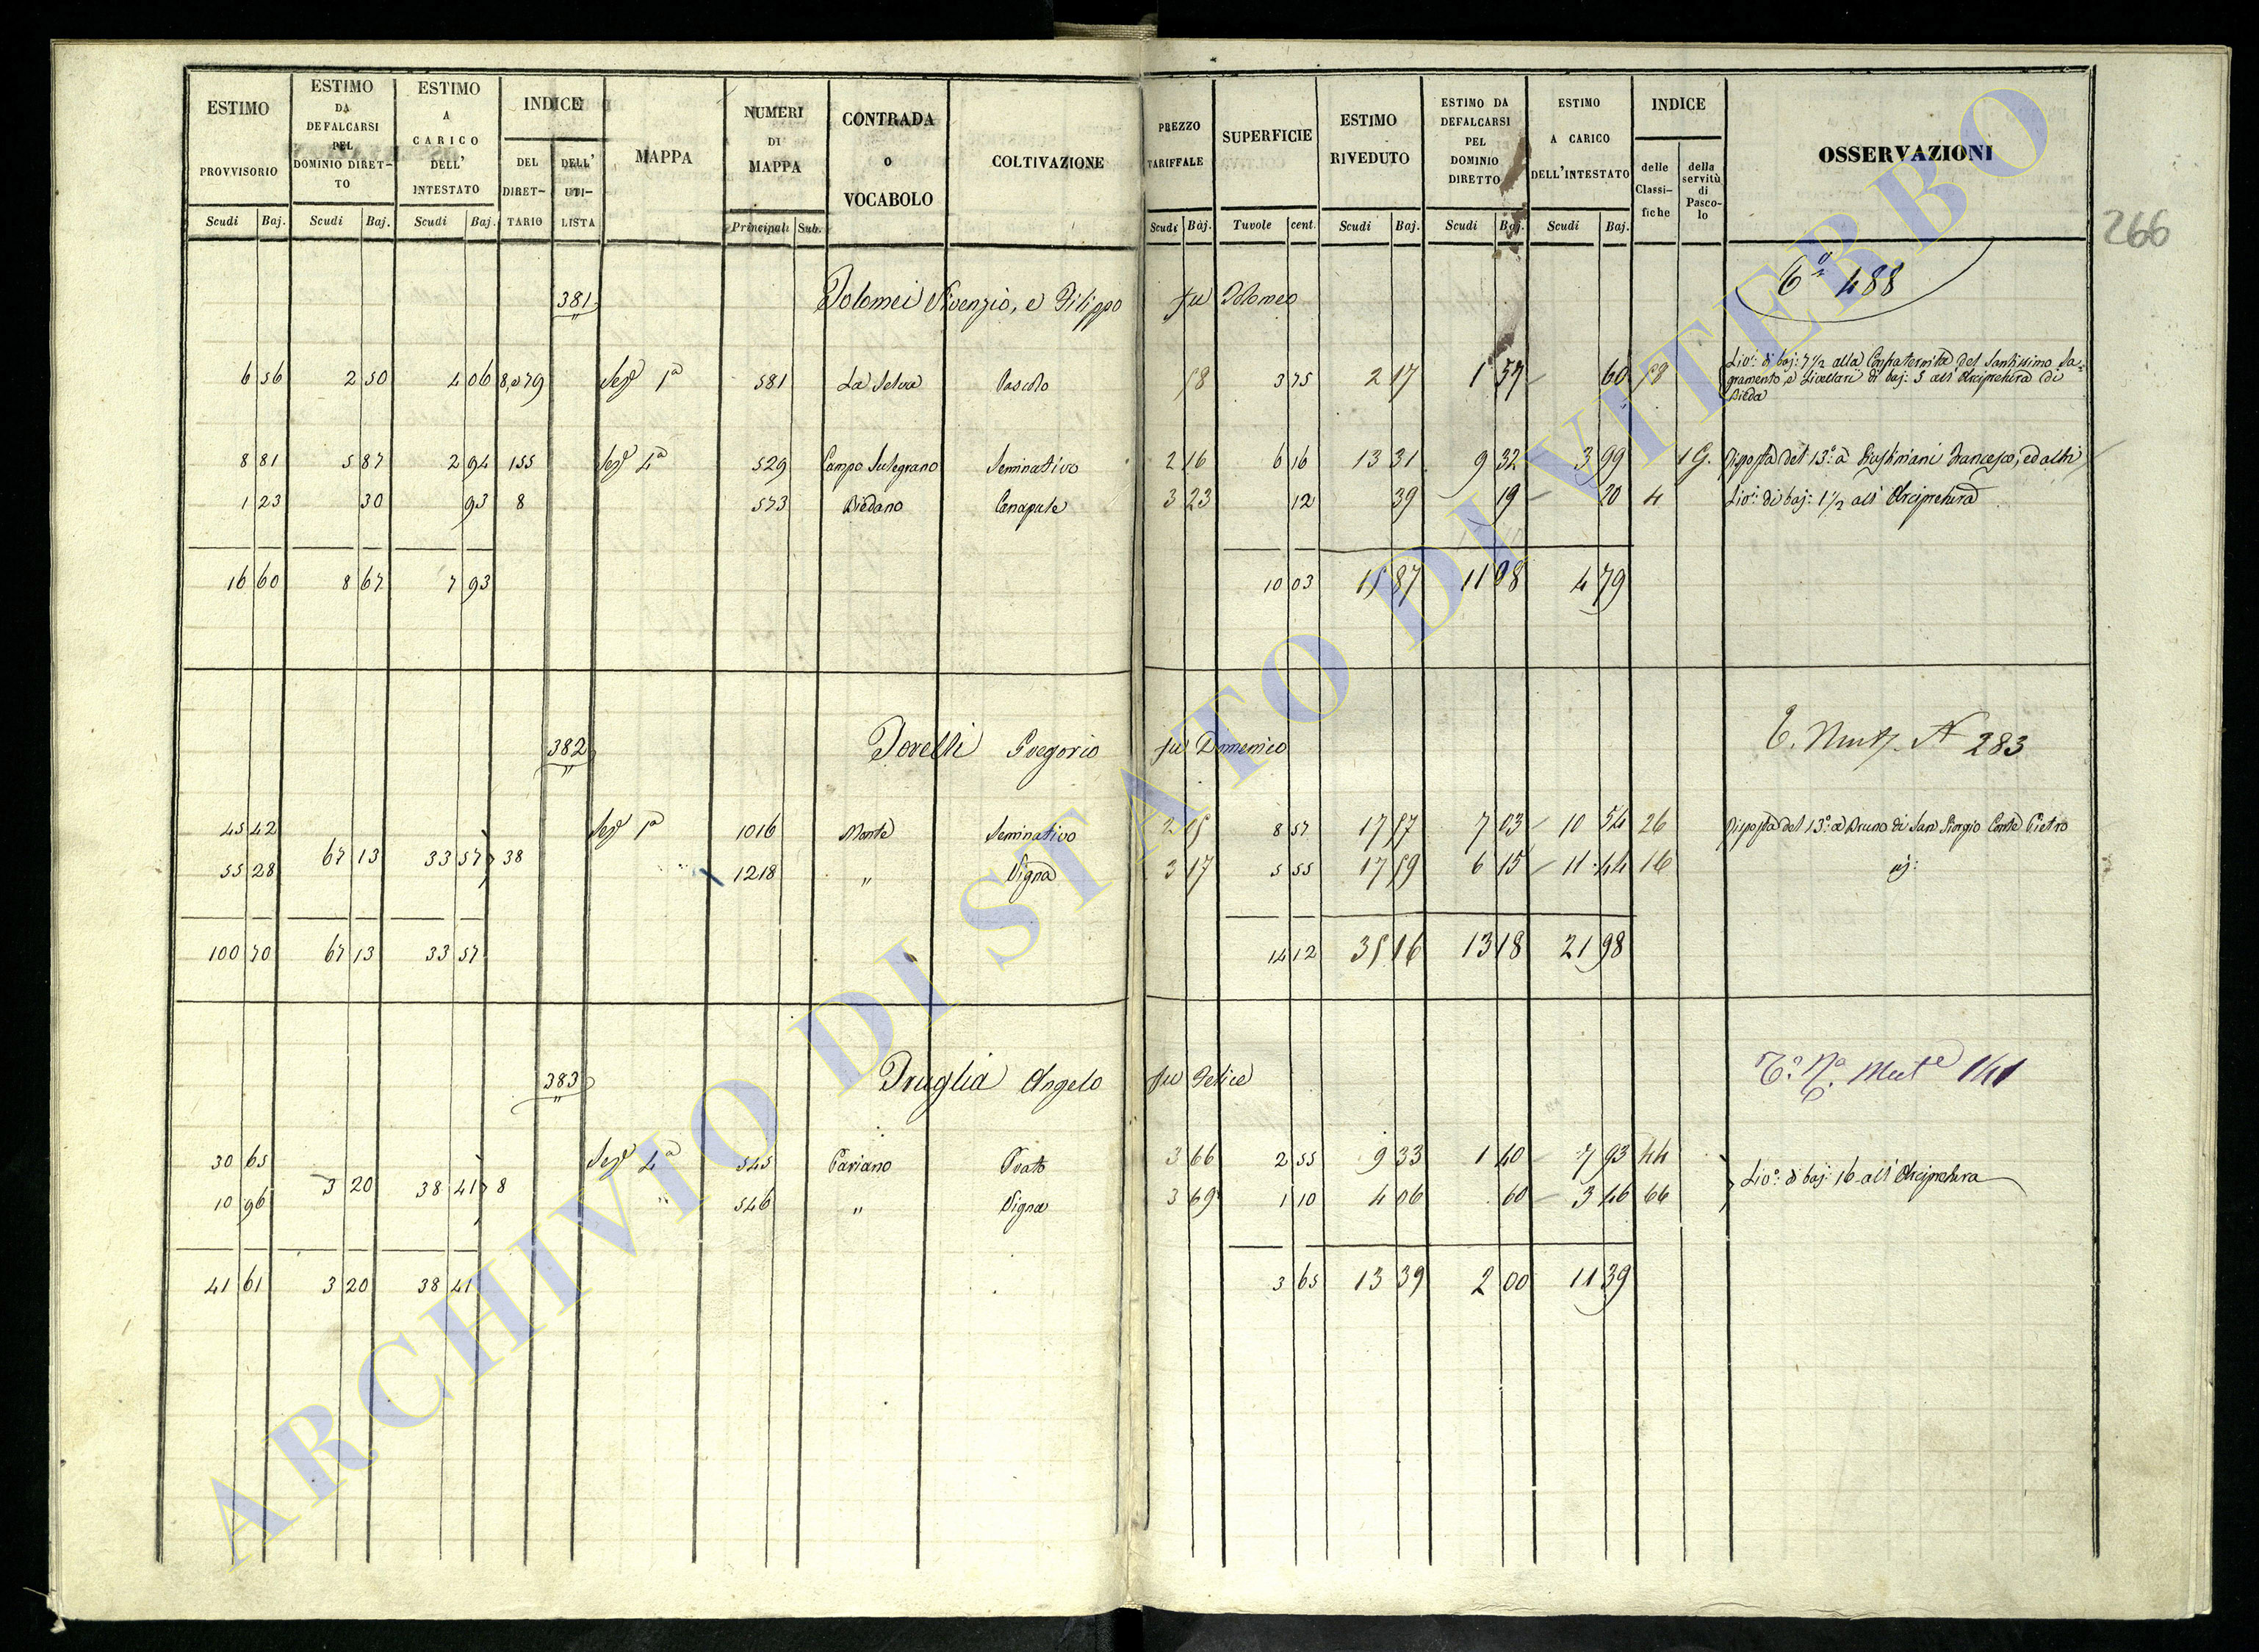 ESTIMO PROVVISORIO Scudi Baj.
ESTIMO DA DEFALCARSI PEL DOMINIO DIRET-TO Scudi Baj.
ESTIMO A CARICO DELL' INTESTATO Scudi Baj.
INDICE DEL DIRET-TARIO DELL' UTI-LISTA
MAPPA
NUMERI DI MAPPA Principali Sub.
CONTRADA o VOCABOLO
COLTIVAZIONE
PREZZO TARIFFALE Scudi Baj.
SUPERFICIE Tavole cent.
ESTIMO RIVEDUTO Scudi Baj.
ESTIMO DA DEFALCARSI PEL DOMINIO DIRETTO Scudi Baj.
ESTIMO A CARICO DELL'INTESTATO Scudi Baj.
INDICE delle Classi-fiche della servitù di Pasco-lo
OSSERVAZIONI
266
381 Tolomei Vivenzio, e Filippo fu Tolomeo 488
6 56 2 50 4 06 8,079 Sez.e 1a 581 La Selva Pascolo 58 3 75 2 17 1 57 60 58 Liv.i di baj: 7 1/2 alla Confraternita del Santissimo Sa-
gramento e Livellari di baj: 5 all' Arcipretura di
Bieda
8 81 5 87 2 94 155 Sez.e 4a 529 Campo Sutegrano Seminativo 2 16 6 16 13 31 9 32 3 99 1 G. Risposta del 13.o a Giustiniani Francesco, ed altri
1 23 30 93 8 573 Biedano Canapule 3 23 12 39 19 20 4 Liv.i di baj: 1 1/2 all' Arcipretura
16 60 8 67 7 93 10 03 15 87 11 08 4 79
382 Torelli Gregorio fu Domenico T. Mut. N 283
45 42 Sez.e 1a 1016 Monte Seminativo 2 05 8 57 17 57 7 03 10 54 26 Risposta del 13.o a Bruno di San Giorgio Conte Pietro
67 13 33 57 38
55 28 1218 " Vigna 3 17 5 55 17 59 6 15 11 44 16 id:
100 70 67 13 33 57 14 12 35 16 13 18 21 98
383 Truglia Angelo fu Felice Mut.e 141
30 65 Sez.e 4a 545 Pariano Prato 3 66 2 55 9 33 1 40 7 93 44
3 20 38 41 8 Liv.o di baj: 16 all' Arcipretura
10 96 546 " Vigna 3 69 1 10 4 06 60 3 46 66
41 61 3 20 38 41 3 65 13 39 2 00 11 39
ARCHIVIO DI STATO DI VITERBO